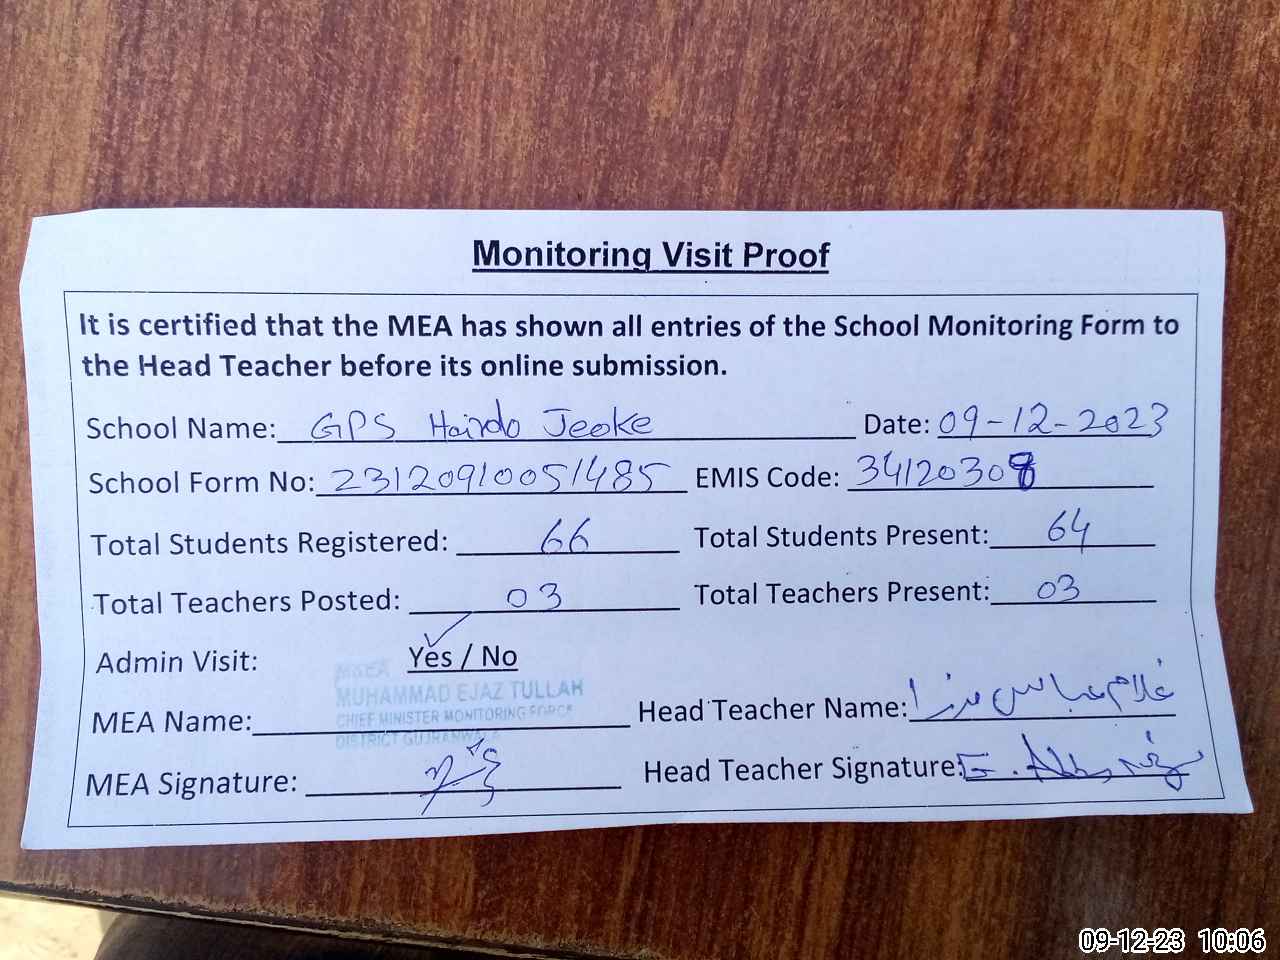 Monitoring Visit Proof
It is certified that the MEA has shown all entries of the School Monitoring Form to
the Head Teacher before its online submission.
School Name: GPS Hairdo Jeoke Date: 09-12-2023
School Form No: 23120910051485 EMIS Code: 3412030
Total Students Registered: 66 Total Students Present: 64
Total Teachers Posted: 03 Total Teachers Present: 03
Admin Visit: Yes / No
MEA
MUHAMMAD EJAZ TULLAH
CHIEF MINISTER MONITORING FORCE
DISTRICT GUJRANWALA
MEA Name: Head Teacher Name: غلام عباس مرزا
MEA Signature: Head Teacher Signature: G. Abbas
09-12-23 10:06